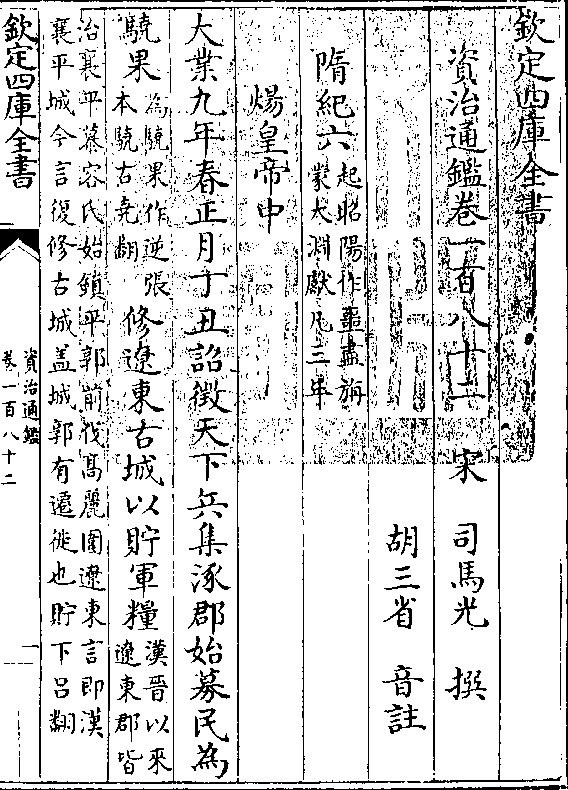 欽定四庫全書
資治通鑑卷一百八十二
宋 司馬光 撰
胡三省 音註
隋紀六起昭陽作噩盡旃
蒙大淵獻凡三年
煬皇帝中
大業九年春正月丁丑詔徵天下兵集涿郡始募民為
驍果為驍果作逆張
本驍古堯翻修遼東古城以貯軍糧漢晉以來
遼東郡皆
治襄平慕容氏始鎮平郭前伐高麗圍遼東言即漢
襄平城今言復修古城盖城郭有遷徙也貯丁呂翻
欽定四庫全書
資治通鑑
卷一百八十二
一